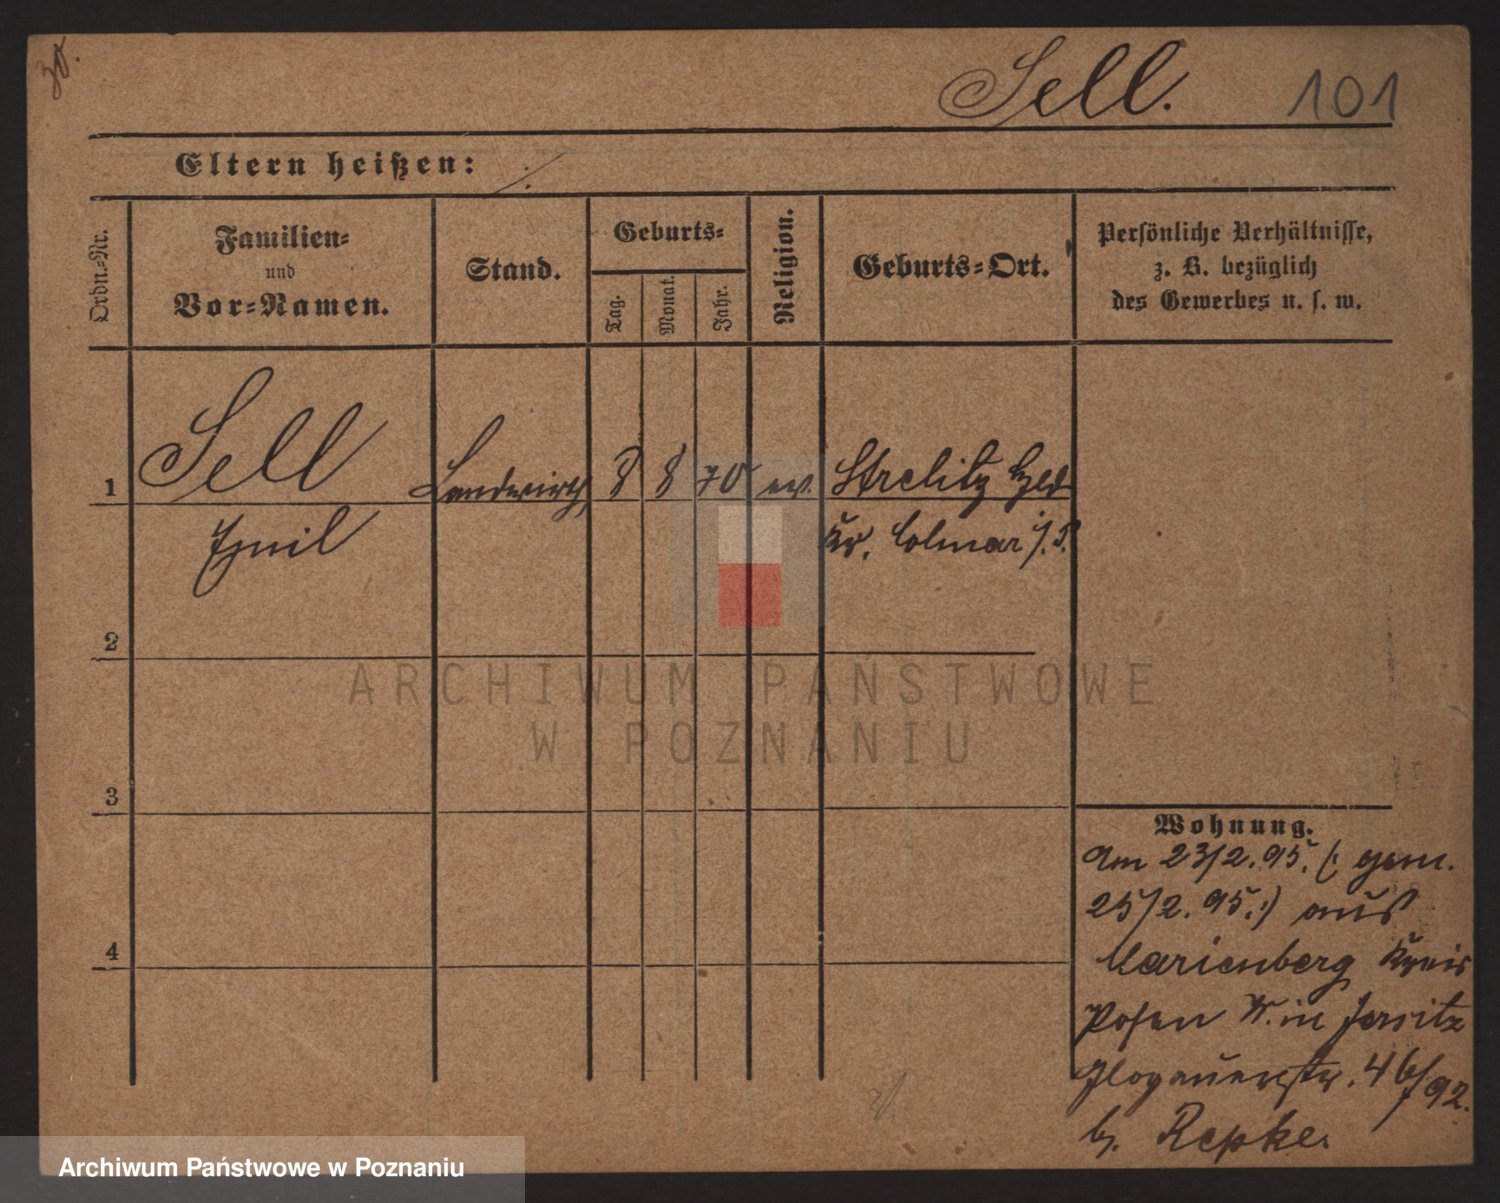 Sell. 101
Eltern heißen: ./.
Ordn.-Nr.
Familien-
und
Vor-Namen.
Stand.
Geburts-
Tag.
Monat.
Jahr.
Religion.
Geburts-Ort.
Persönliche Verhältnisse,
z. B. bezüglich
des Gewerbes u. s. w.
1 Sell Landwirth 8 8 70 ev. Strelitz Hld
Emil Kr. Colmar i/P.
2
3
4
Wohnung.
Am 23/2. 95. (: gem.
25/2. 95.:) aus
Marienberg Kreis
Posen W. in Jersitz
Glogauerstr. 46/92.
b. Repke.
ARCHIWUM PAŃSTWOWE
W POZNANIU
Archiwum Państwowe w Poznaniu